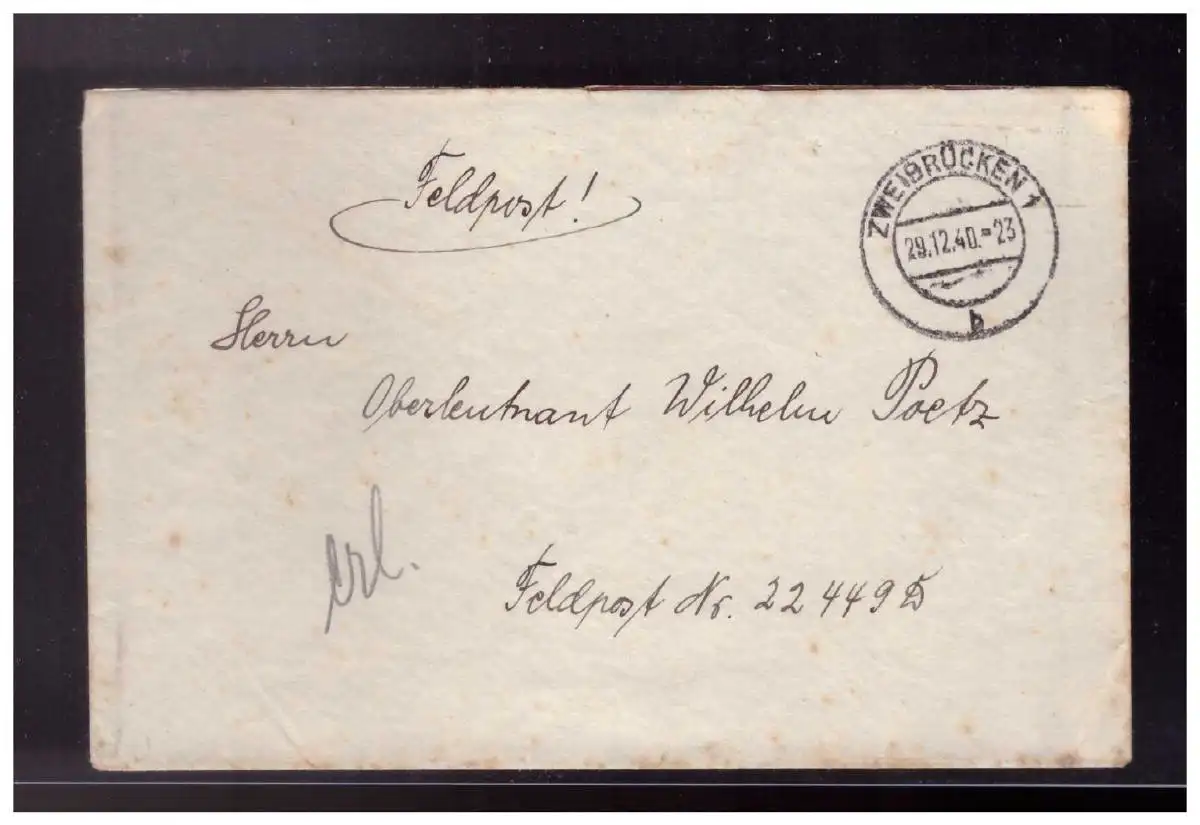 Feldpost!
ZWEIBRÜCKEN 1
29.12.40.=23
b
Herrn
Oberleutnant Wilhelm Poetz
erl.
Feldpost Nr. 22449 D